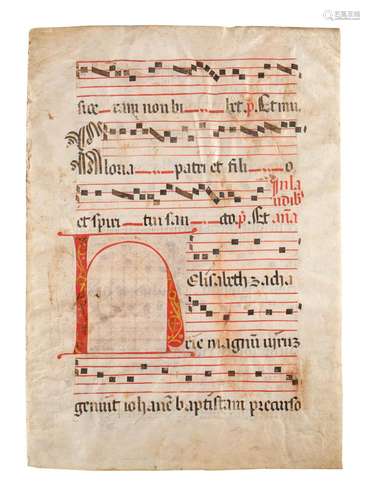 sice ram non bi bet. p. Et mu
Gloria patri et fili o
In lau
dib9
et spiri tui san cto. p. Et aña
Elisabeth zacha
rie magnū virū
genuit iohanē baptistam precurso